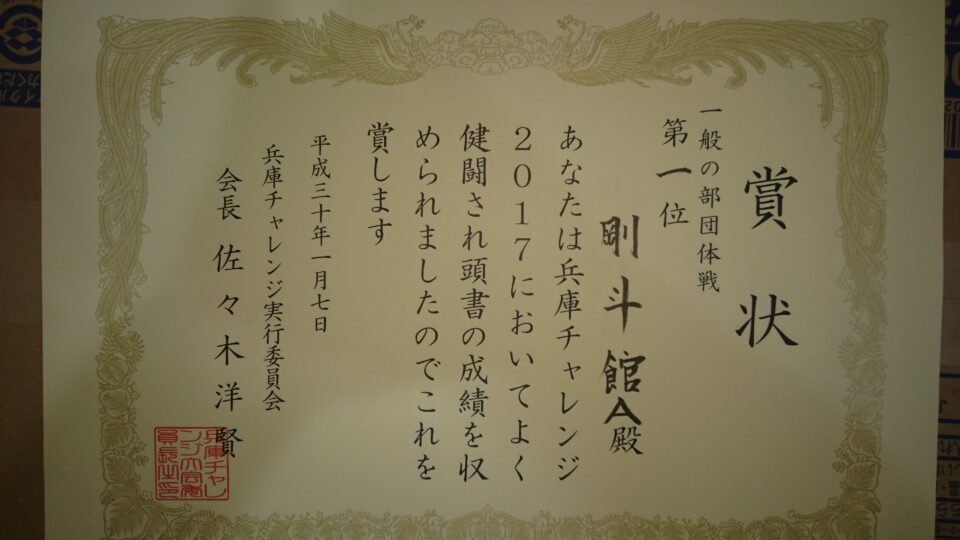 賞状
一般の部団体戦
第一位
剛斗館A殿
あなたは兵庫チャレンジ
2017においてよく
健闘され頭書の成績を収
められましたのでこれを
賞します
平成三十年一月七日
兵庫チャレンジ実行委員会
会長 佐々木洋賢